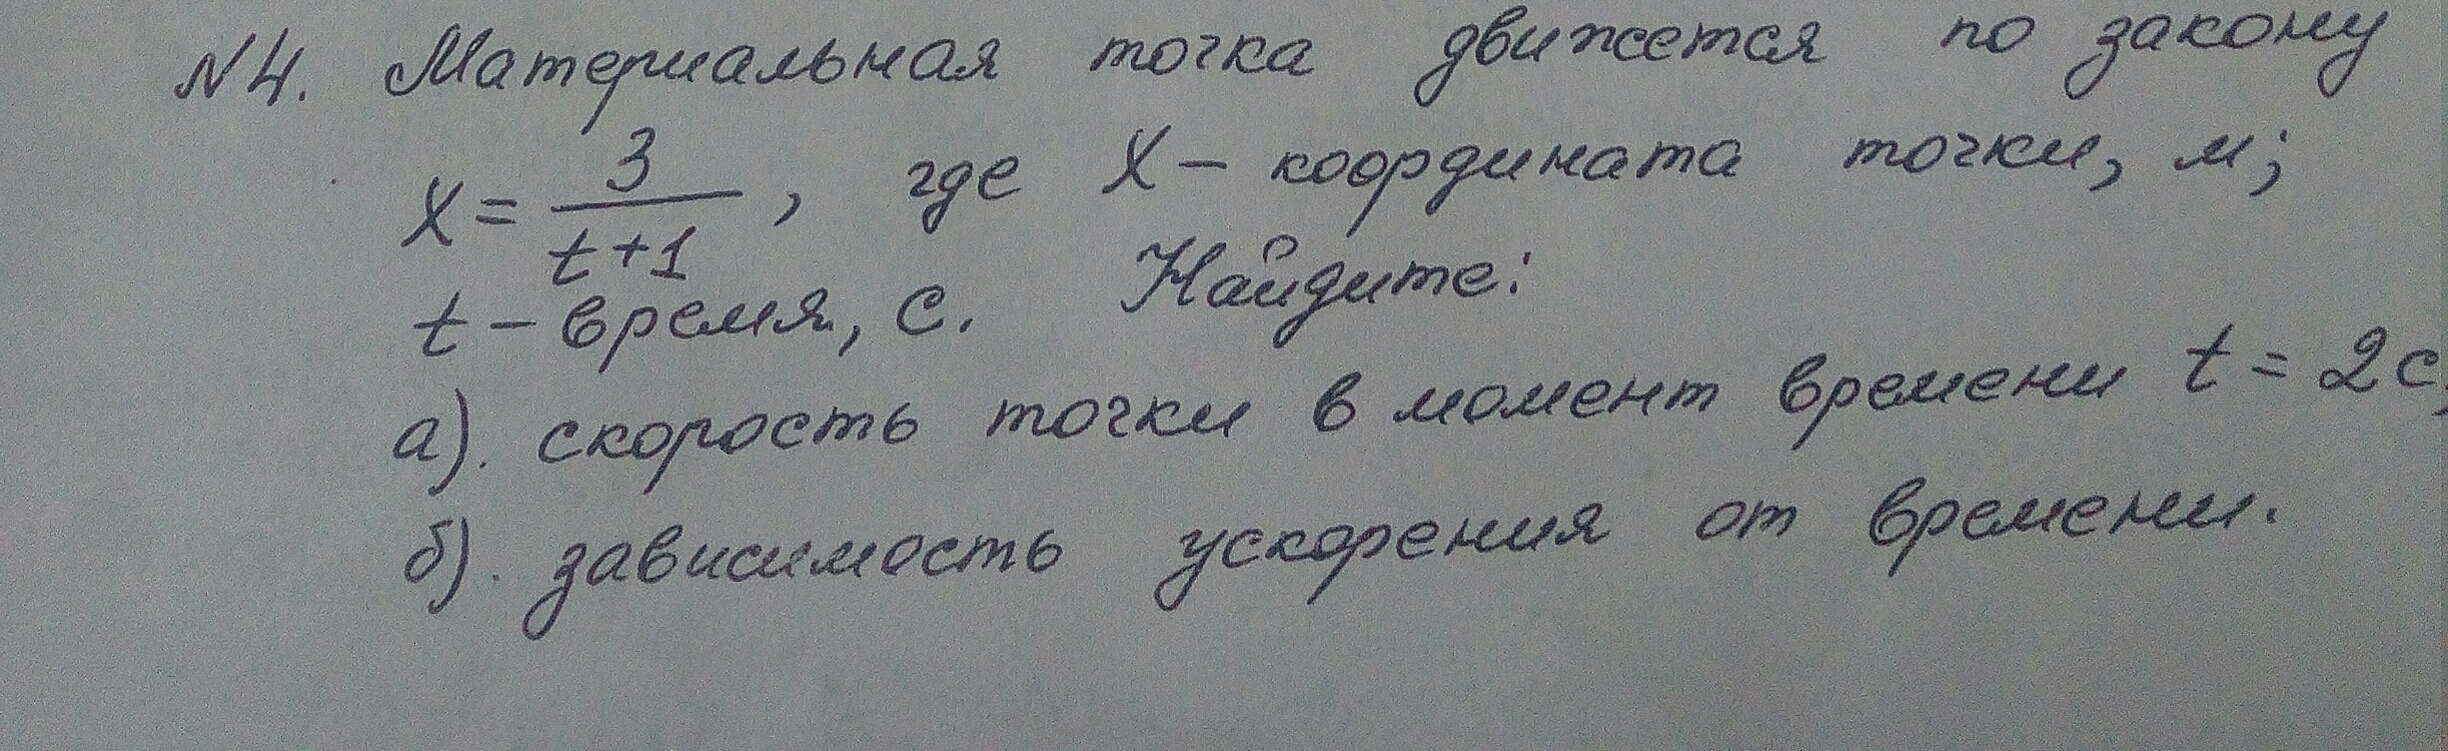 №4. Материальная точка движется по закону
x = 3/(t+1), где x – координата точки, м;
t – время, с. Найдите:
а). скорость точки в момент времени t = 2с,
б). зависимость ускорения от времени.